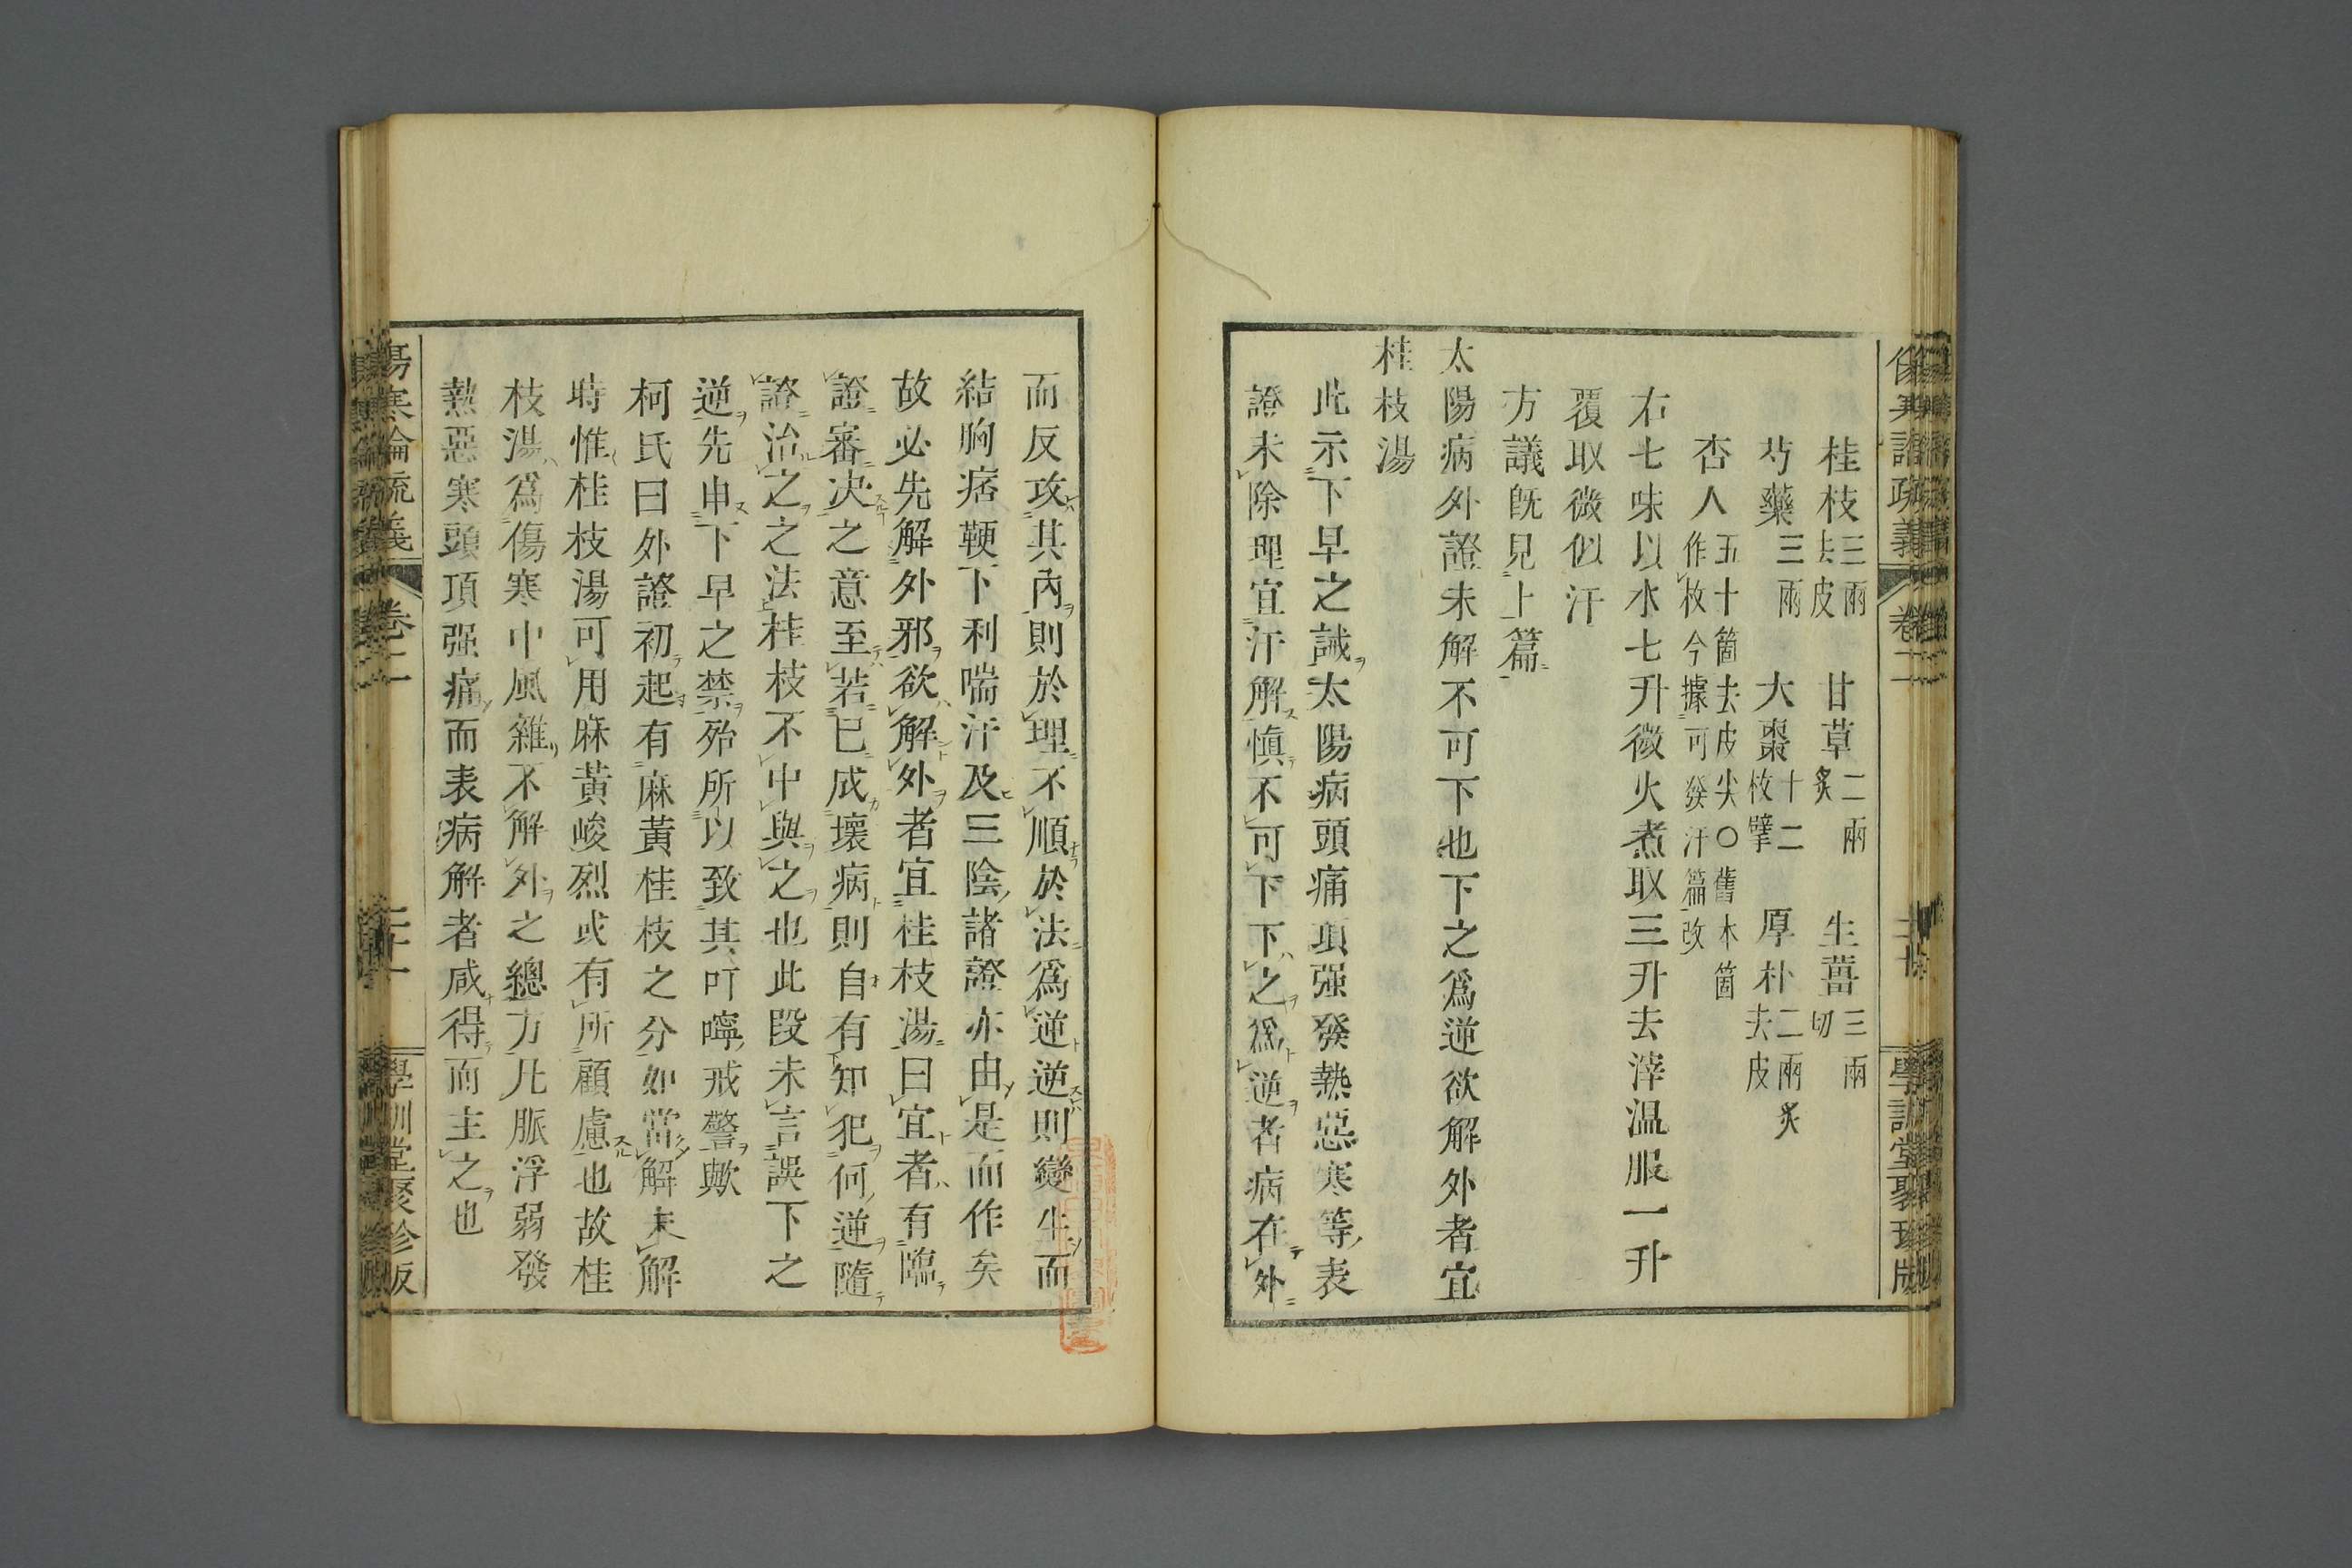 桂枝三兩去皮 甘草二兩炙 生薑三兩切
芍藥三兩 大棗十二枚擘 厚朴二兩炙去皮
杏人五十箇去皮尖○舊本箇作枚今據可發汗篇改
右七味以水七升微火煮取三升去滓温服一升
覆取微似汗
方議既見上篇
太陽病外證未解不可下也下之爲逆欲解外者宜
桂枝湯
此示下早之誡太陽病頭痛項强發熱惡寒等表
證未除理宜汗解愼不可下下之爲逆者病在外
而反攻其內則於理不順於法爲逆逆則變生而
結胸痞鞕下利喘汗及三陰諸證亦由是而作矣
故必先解外邪欲解外者宜桂枝湯曰宜者有臨
證審决之意至若已成壞病則自有知犯何逆隨
證治之之法桂枝不中與之也此段未言誤下之
逆先申下早之禁殆所以致其叮嚀戒警歟
柯氏曰外證初起有麻黃桂枝之分如當解未解
時惟桂枝湯可用麻黃峻烈或有所顧慮也故桂
枝湯爲傷寒中風雜不解外之總方凡脈浮弱發
熱惡寒頭項强痛而表病解者咸得而主之也
傷寒論疏義 卷二 二十一 學訓堂聚珍版